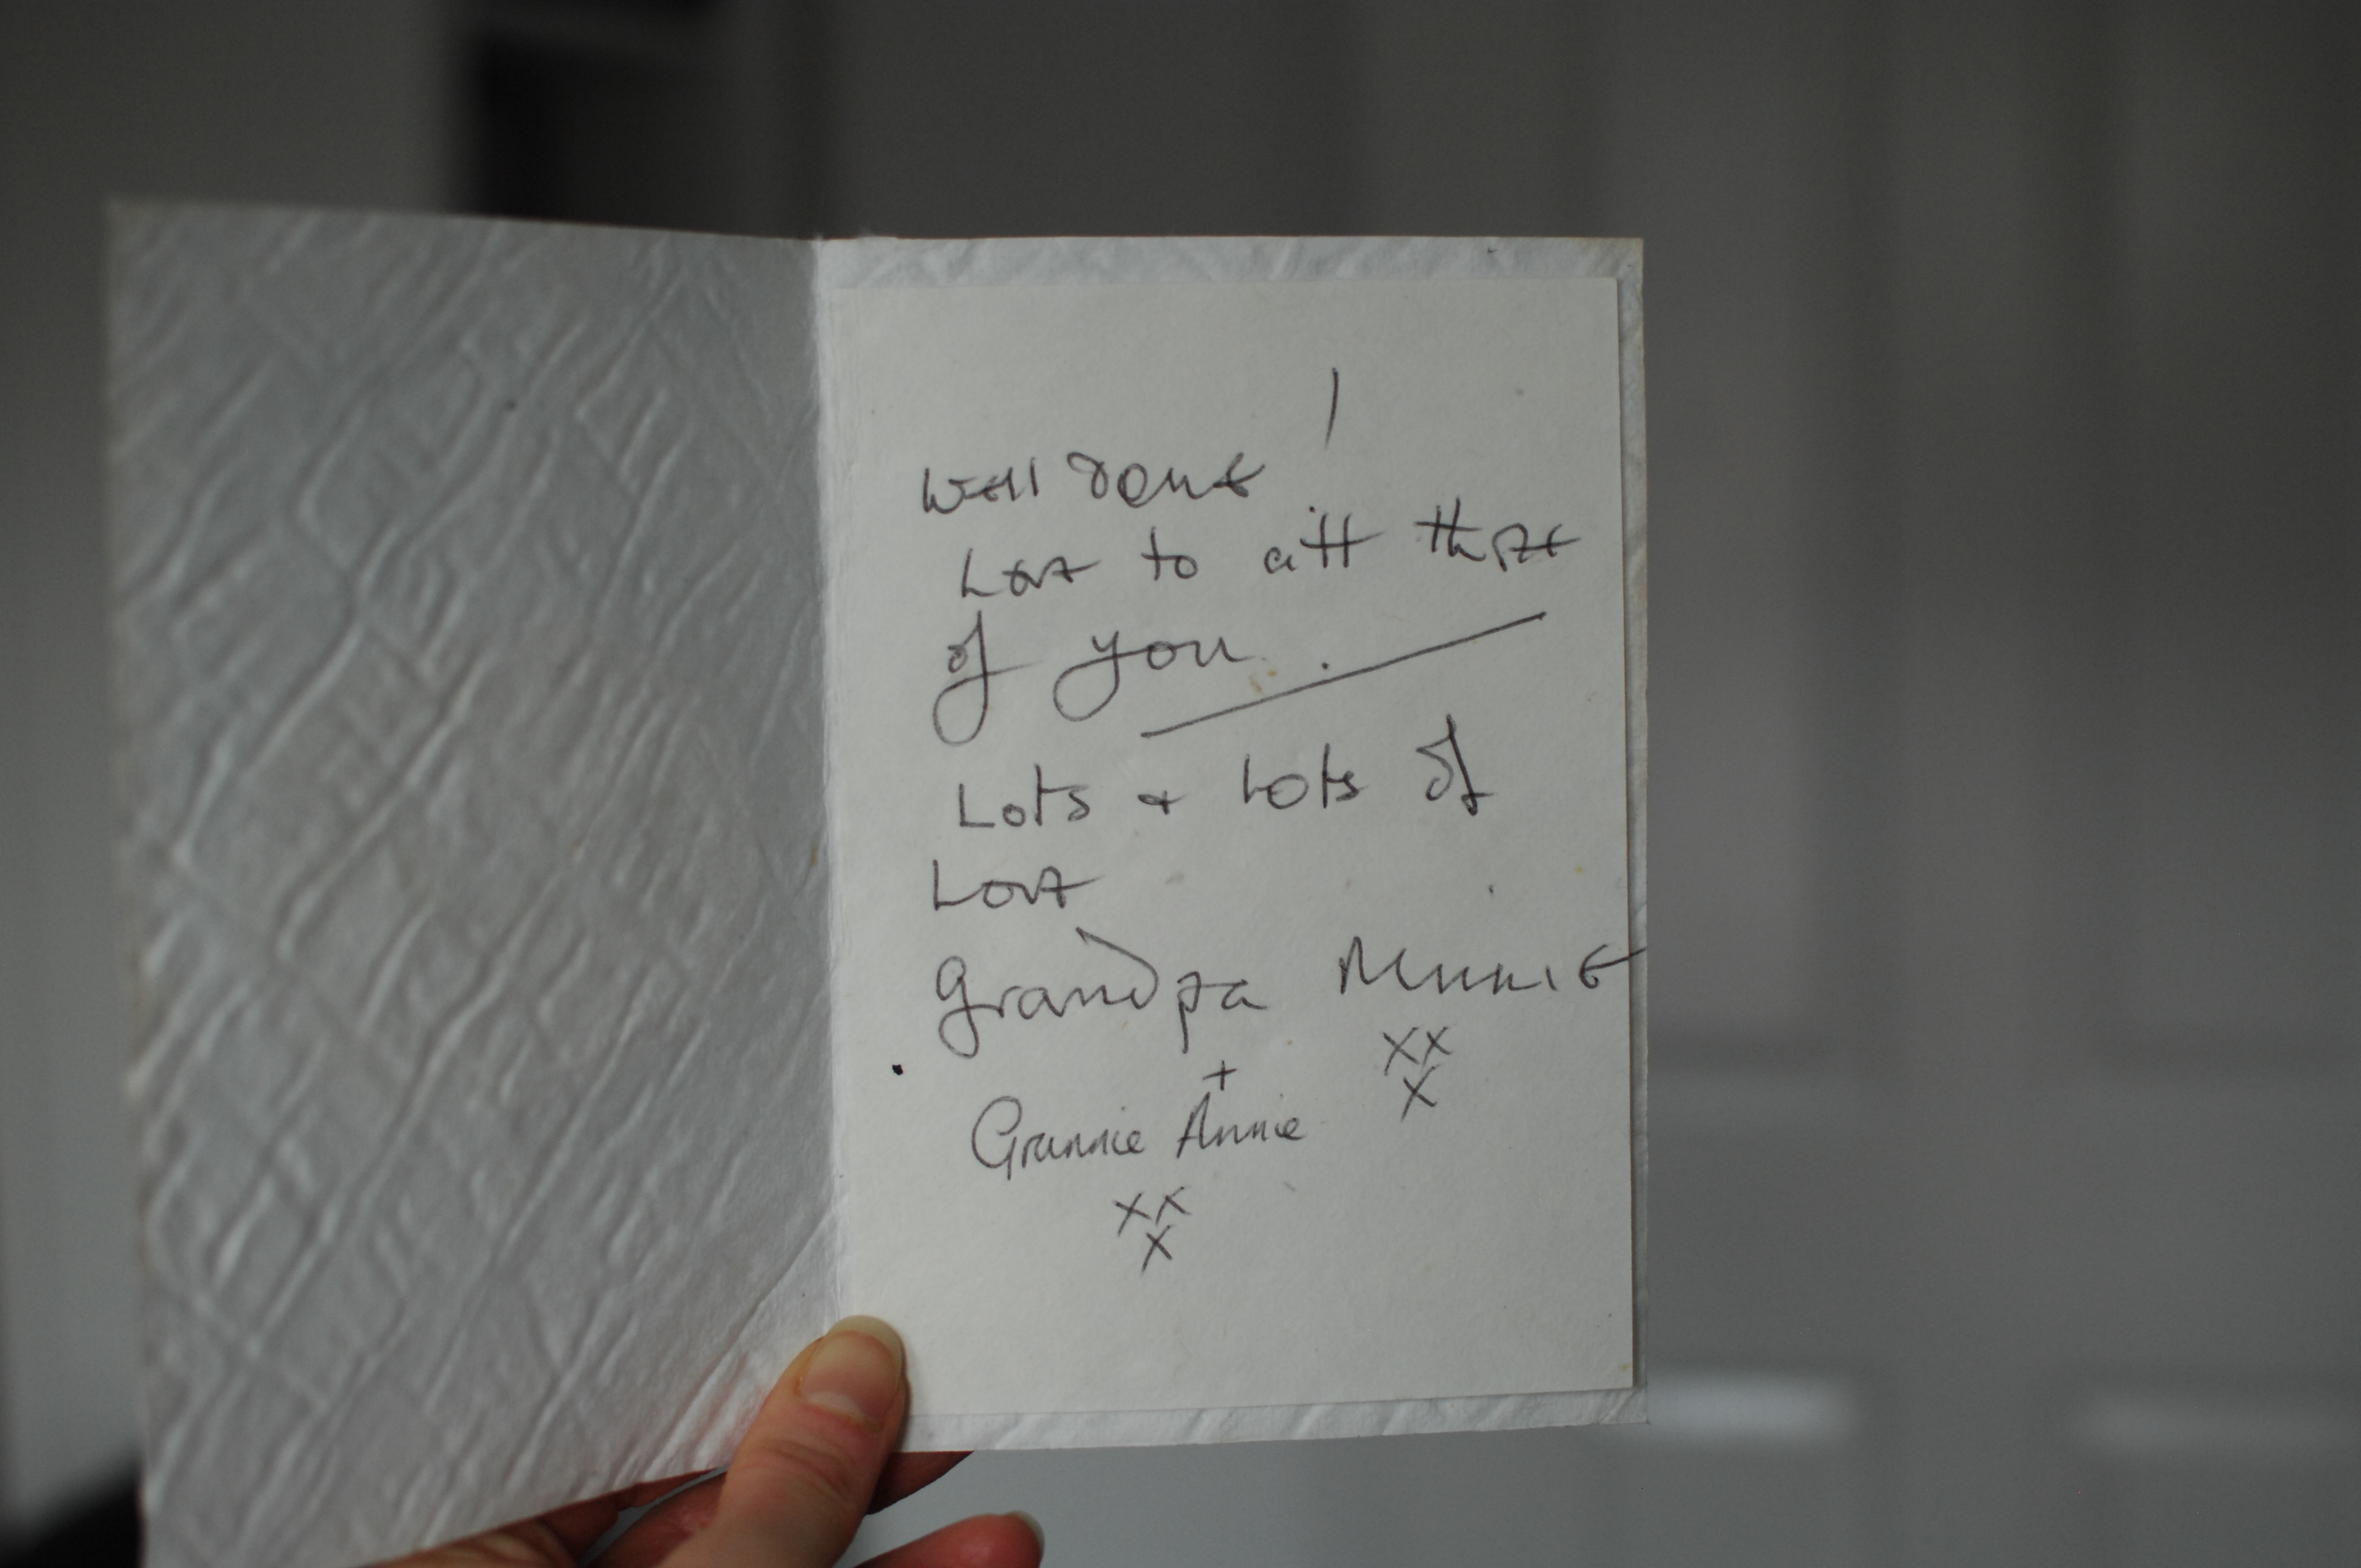 Well done !
Love to all three
of you .
Lots + Lots of
Love
Grandpa
+
xx
x
Grannie Annie
xx
x